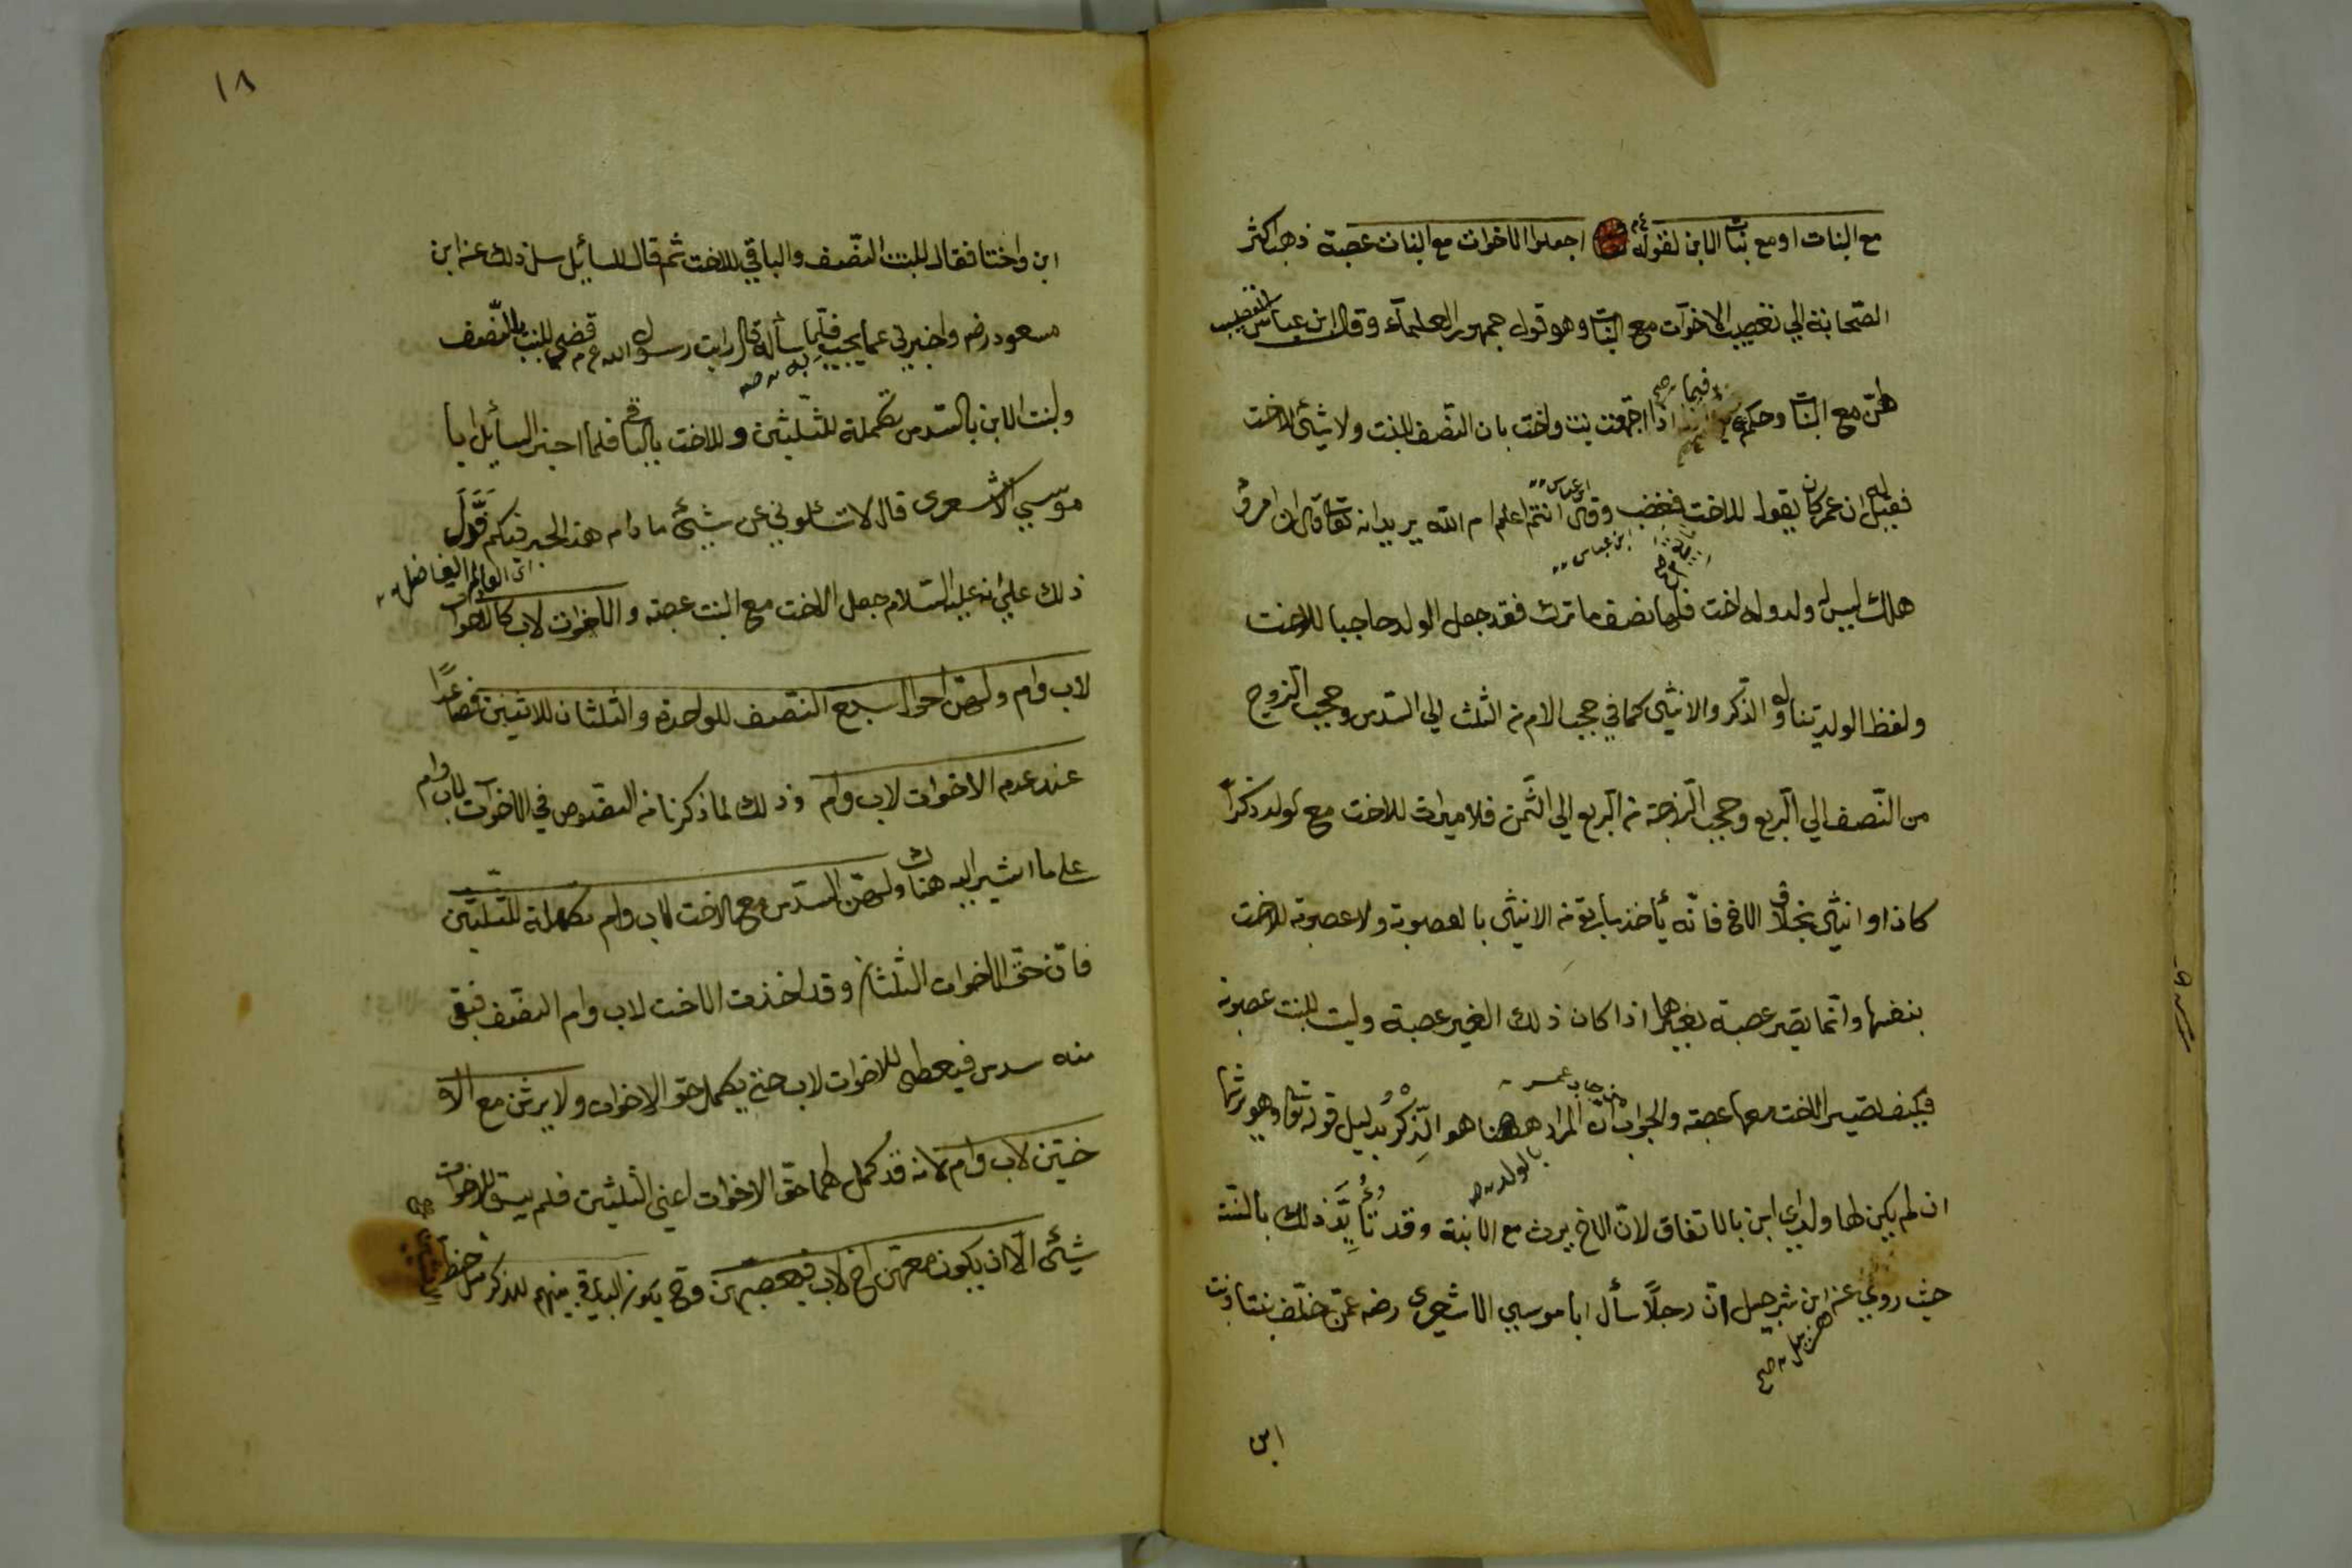 مع البنات او مع بنات الابن لقوله عم اجعلوا الاخوات مع البنات عصبة ذهب اكثر
الصّحابة الي تعصيب الاخوات مع البنات وهو قول جمهور العلمآء وقال ابن عباس لا تعصيب
لهنّ مع البنات وحكم فيما صح اذا اجتمعت بنت واخت بان النّصف للبنت ولا شئ للاخت
فقيل له ان عمر كان يقول للاخت فغضب وقال ابن عباس انتم اعلم ام اللّه يريد انه تعا قال ان امرؤ
ابن عباس
هلك ليس له ولد وله اخت فلها نصف ما ترك فقد جعل الولد حاجبا للاخت
ولفظ الولد يتناول الذّكر والانثي كما في حجب الام من الثلث الي السّدس وحجب الزوج
من النّصف الي الرّبع وحجب الزّوجة من الرّبع الي الثّمن فلا ميراث للاخت مع الولد ذكراً
كان او انثي بخلاف الاخ فانّه يأخذ ما بقي من الانثي بالعصوبة ولا عصوبة للاخت
بنفسها وانّما تصير عصبة بغيرها اذا كان ذلك الغير عصبة وليست للبنت عصوبة
فكيف تصير الاخت معها عصبة والجواب انّ المراد ههنا هو الذّكر بدليل قوله تعا وهو يرثها
بالولد صح
ان لم يكن لها ولد اي ابن بالاتفاق لانّ الاخ يرث مع الابنة وقد تأيّد ذلك بالسّنّة
حيث روي عن ابن شرحبيل انّ رجلًا سأل ابا موسي الاشعري رضه عمّن خلّف بنتا وبنت
هزيل صح
ابن
١٨
ابن واختا فقال للبنت النّصف والباقي للاخت ثم قال للسائل سل ذلك عن ابن
مسعود رضه واخبرني عما يجيب فلما سأله قال رايت رسول الله عم قضي للبنت بالنّصف
به صح
ولبنت الابن بالسّدس تكملة للثّلثين وللاخت بالباقي فلما اخبر السائل ابا
موسي الاشعري قال لا تسئلوني عن شيئ ما دام هذا الحبر فيكم فدلّ
اي العالم الفاضل
ذلك علي انه عليه السّلام جعل الاخت مع البنت عصبة والاخوات لاب كالاخوات
لاب وام ولهنّ احوال سبع النّصف للواحدة والثلثان للاثنين فصاعدًا
عند عدم الاخوات لاب وام وذلك لما ذكرنا من النصوص في الاخوات لاب وام
علي ما اشير اليه هناك ولهنّ السّدس مع الاخت لاب وام تكملة للثّلثين
فانّ حقّ الاخوات الثلثان وقد اخذت الاخت لاب وام النصف فبقي
منه سدس فيعطي للاخوات لاب حتي يكمل حق الاخوات ولا يرثن مع الا
ختين لاب وام لانه قد كمل لهما حقّ الاخوات اعني الثلثين فلم يبق للاخوات
شيئ الّا ان يكون معهنّ اخ لاب فيعصبهنّ وح يكون الباقي بينهم للذكر مثل حظ